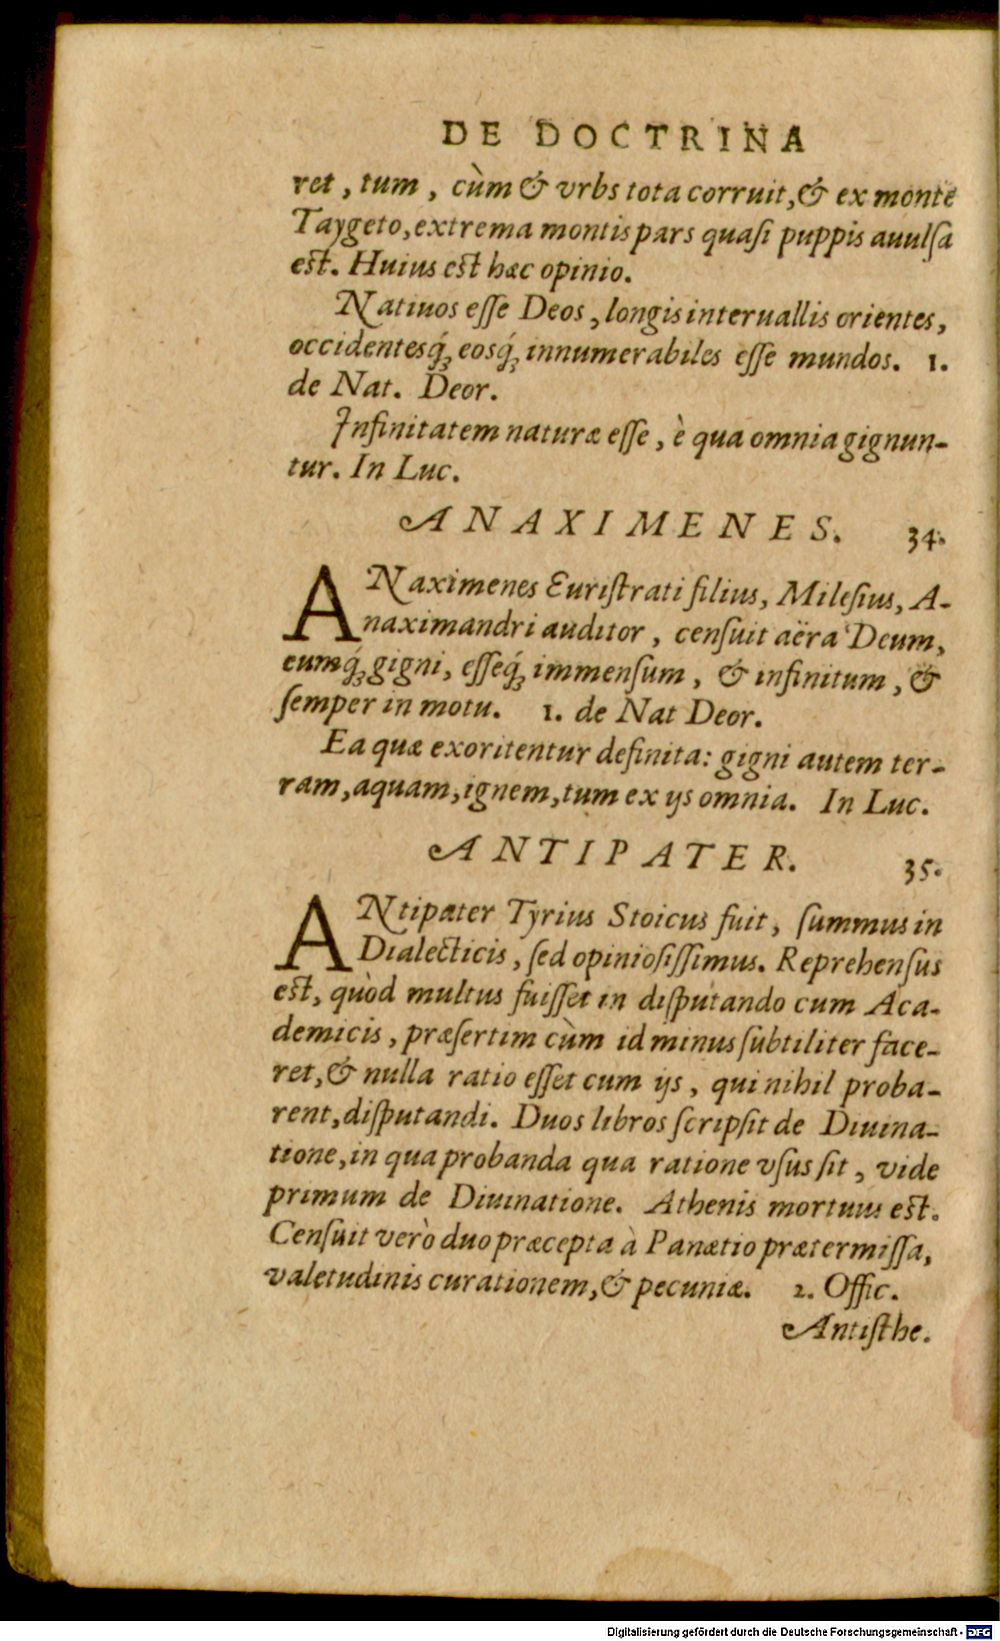 DE DOCTRINA
ret, tum, cùm & vrbs tota corruit, & ex monte
Taygeto, extrema montis pars quaſi puppis auulſa
est. Huius est hæc opinio.
Natiuos eſſe Deos, longis interuallis orientes,
occidentesq́ꝫ eosq́ꝫ innumerabiles eſſe mundos. 1.
de Nat. Deor.
Infinitatem naturæ eſſe, è qua omnia gignun-
tur. In Luc.
ANAXIMENES. 34.
ANaximenes Euriſtrati filius, Mileſius, A-
naximandri auditor, cenſuit aëra Deum,
eumq́ꝫ gigni, eſſeq́ꝫ immenſum, & infinitum, &
ſemper in motu. 1. de Nat Deor.
Ea quæ exoritentur definita: gigni autem ter-
ram, aquam, ignem, tum ex ijs omnia. In Luc.
ANTIPATER. 35.
ANtipater Tyrius Stoicus fuit, ſummus in
Dialecticis, ſed opinioſiſſimus. Reprehenſus
est, quòd multus fuiſſet in diſputando cum Aca-
demicis, præſertim cùm id minus ſubtiliter face-
ret, & nulla ratio eſſet cum ijs, qui nihil proba-
rent, diſputandi. Duos libros ſcripſit de Diuina-
tione, in qua probanda qua ratione vſus ſit, vide
primum de Diuinatione. Athenis mortuus est.
Cenſuit verò duo præcepta à Panætio prætermiſſa,
valetudinis curationem, & pecuniæ. 2. Offic.
Antiſthe.
Digitalisierung gefördert durch die Deutsche Forschungsgemeinschaft - DFG